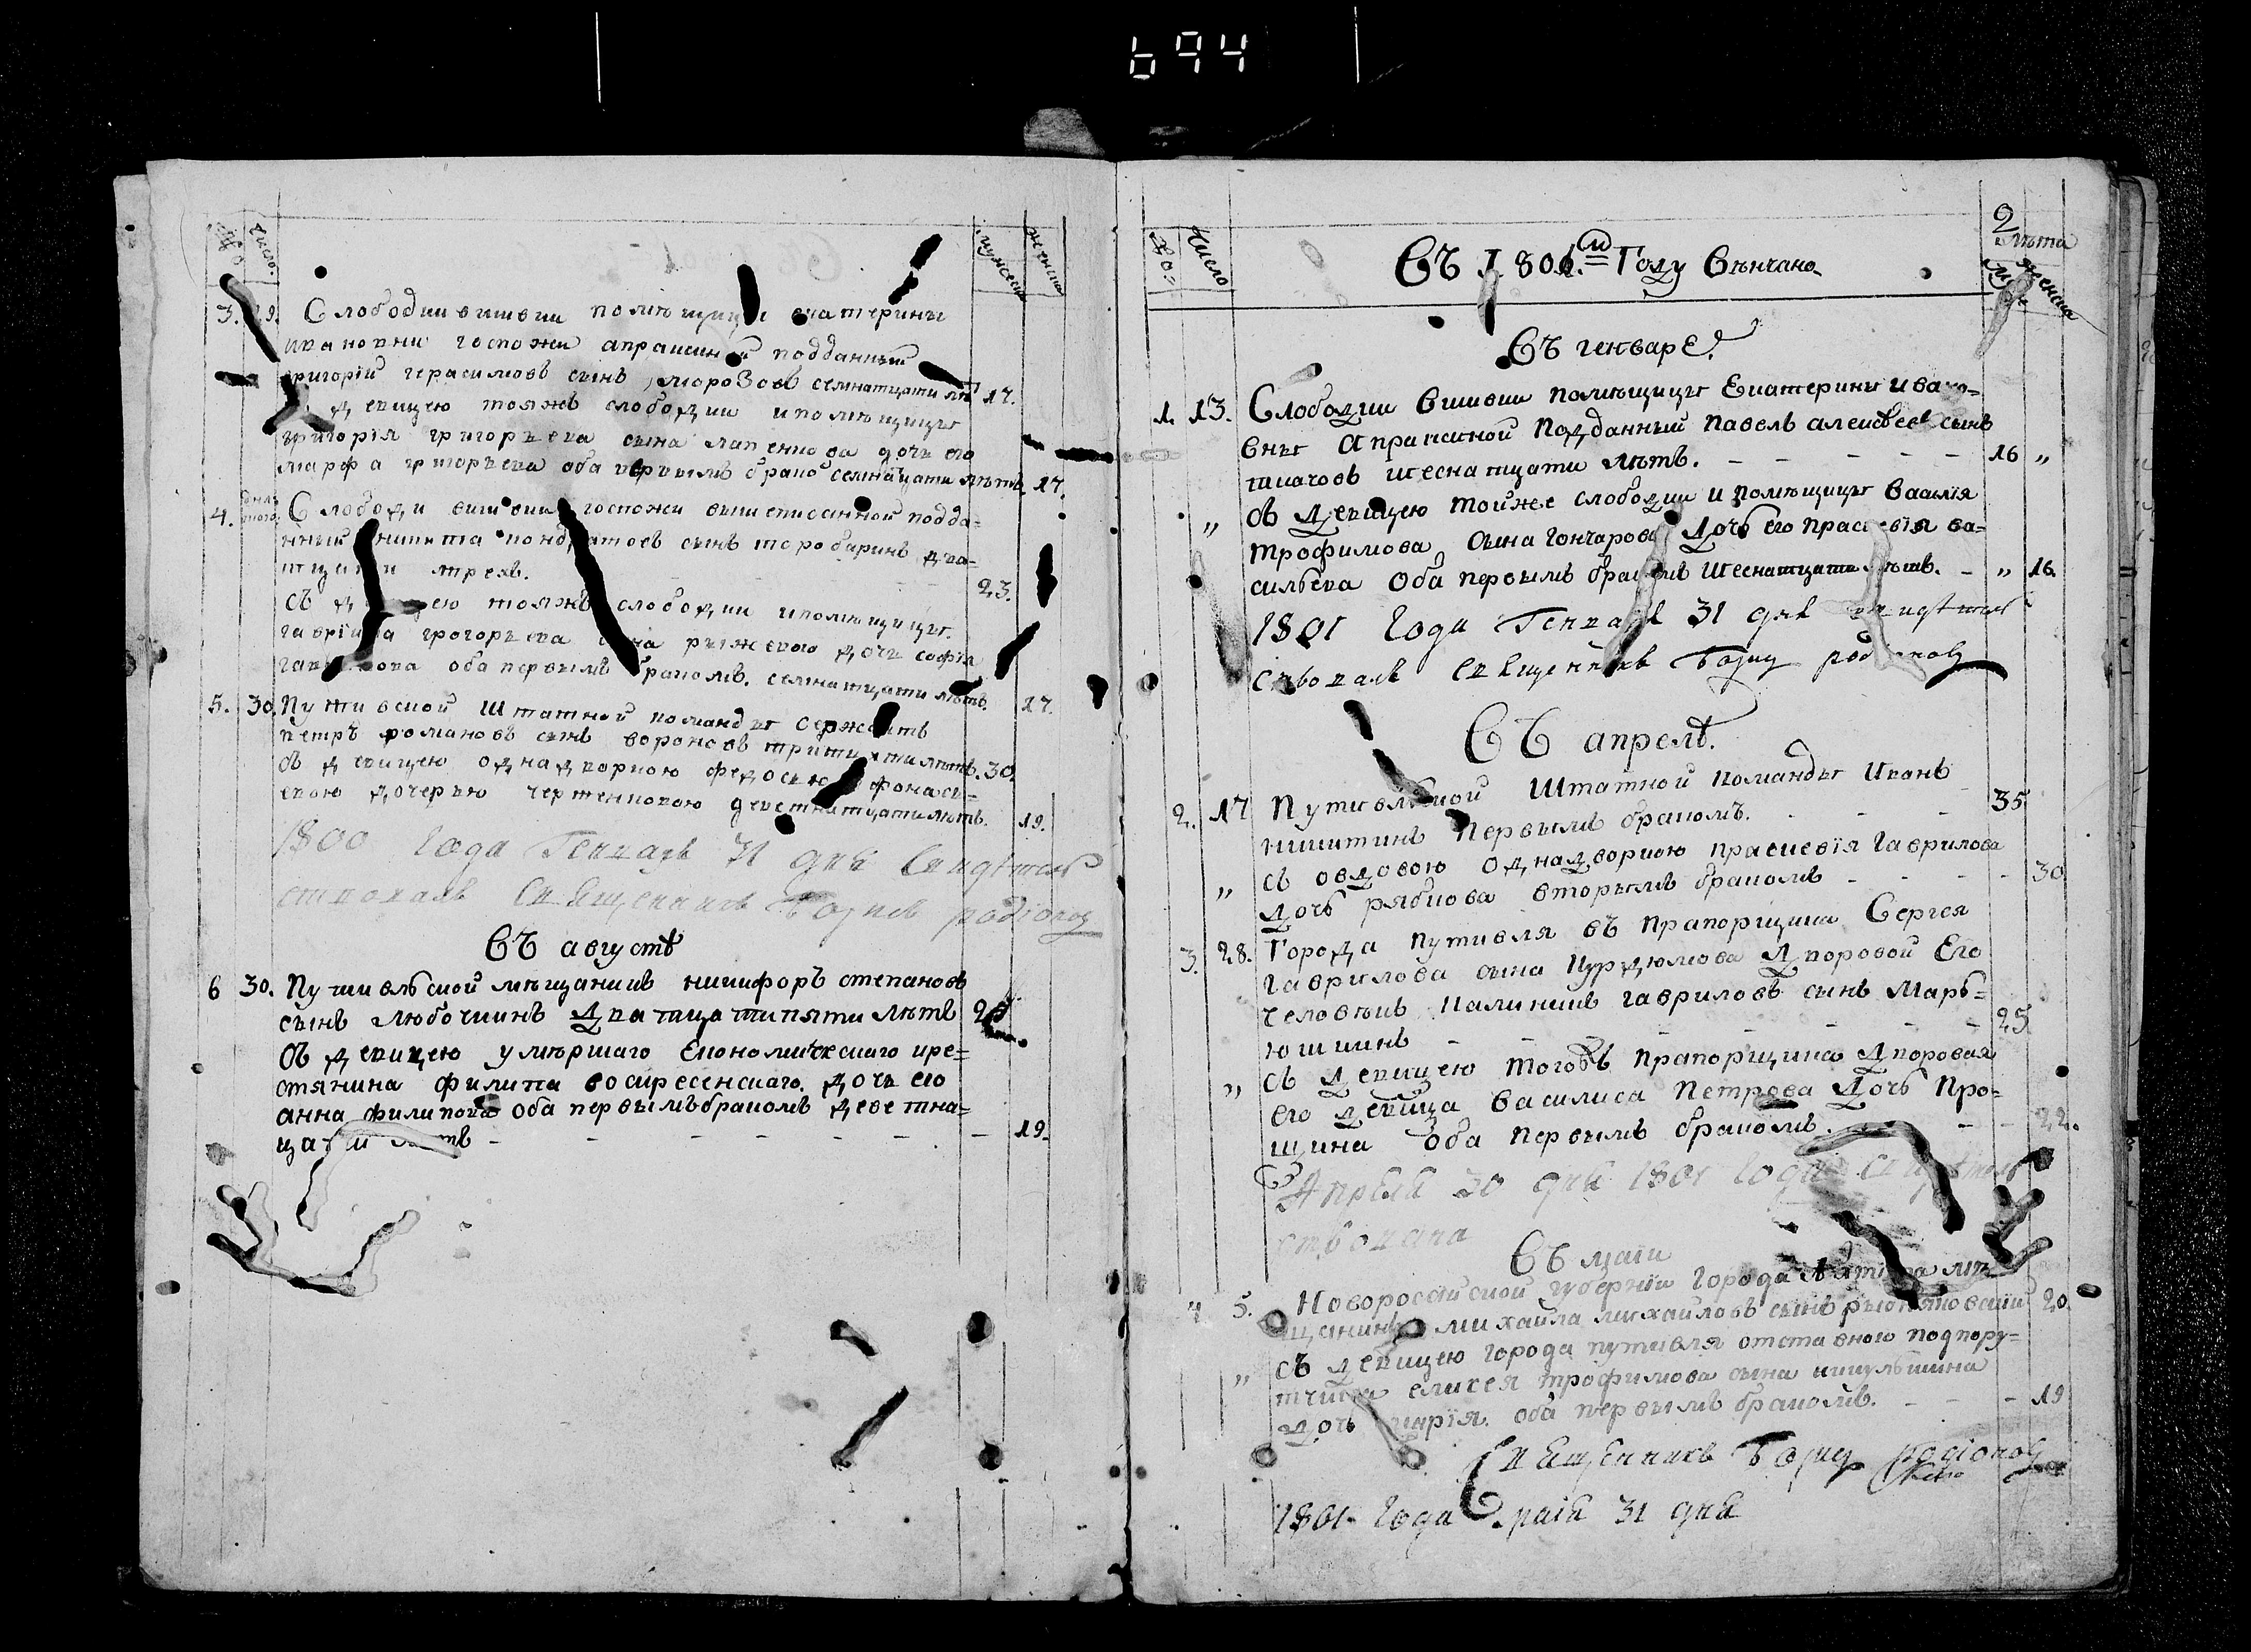 694
№
число.
мужеска
женска
3. 29. Слободки вшивки помѣщицы екатерины
ивановни госпожи апраксиной подданный
григорій герасимовъ сынъ морозовъ семнатцати лѣтъ 17.
дѣвицею тояжъ слободки и помѣщицы
григорія григорьева сына лапенкова дочь его
марфа григорьева оба первымъ бракомъ семнатцати лѣтъ. 17.
4. Слободки вшивки госпожи вышеписанной подда-
нный никита кондратовъ сынъ тородаринъ два-
тцати трехъ. 23.
съ дѣвицею тояжъ слободки и помѣщицы
гаврійла грогорьева сына рыжкова дочь софія
гаврилова оба первымъ бракомъ. семнатцати лѣтъ. 17.
5. 30. Путивской штатной команды сержантъ
петръ романовъ сынъ вороновъ тритцати лѣтъ. 30.
съ дѣвицею однадворкою федосьею афонась-
евою дочерью чертенковою деветнатцати лѣтъ. 19.
1800 года Генваря 31 дня свидѣтель
ствовалъ священникъ Борисъ родіоновъ
Въ августѣ
6 30. Путивльской мѣщанинъ никифоръ степановъ
сынъ любочкинъ дватцати пяти лѣтъ 25
Съ дѣвицею умѣршаго економическаго кре-
стянина филипа воскресенскаго дочь его
анна филипова оба первымъ бракомъ деветна-
цати лѣтъ - - - - - - 19.
2
лѣта
№
Число
муж
женска
Въ 1801.м Году Вѣнчано
Въ генваре.
1. 13. Слободки Вшивки помѣщицы Екатерины ивано-
вны Апраксиной подданный павелъ алексѣевъ сынъ
ткачовъ шеснатцати лѣтъ. - - - - - 16 „
„ Съ дѣвицею тойже слободки и помѣщицы василія
трофимова сына гончарова дочь его праскевія ва-
сильева оба первымъ бракомъ шеснатцати лѣтъ. - „ 16.
1801 Года Генваря 31 дня свидѣтель
ствовалъ священникъ Борисъ родіоновъ
Въ апрелѣ.
2. 17 Путивльской штатной команды иванъ
никитинъ первымъ бракомъ. - - - 35
„ съ вдовою однадворкою праскевія гаврилова
дочь рябкова вторымъ бракомъ - - - - 30
3. 28. Города путивля въ прапорщика Сергея
гаврилова сына курдюмова дворовой Его
человѣкъ калинникъ гавриловъ сынъ марь-
юшкинъ - - - - - - 25
„ съ дѣвицею тогожъ прапорщика дворовая
его дѣвица василиса петрова дочь про-
щина оба первымъ бракомъ. - - 22.
Апреля 30 дня 1801 года свидѣтель
ствована
Въ маіи
4 5. Новоросійской губерніи города мѣ
щанинъ михайла михайловъ сынъ 20.
„ съ дѣвицею города путивля отставного подпору-
тчика елисея трофимова сына никульшина
дочь марія. оба первымъ бракомъ. - - - 19
Священникъ Борисъ родіоновъ
1801. года маія 31 дня